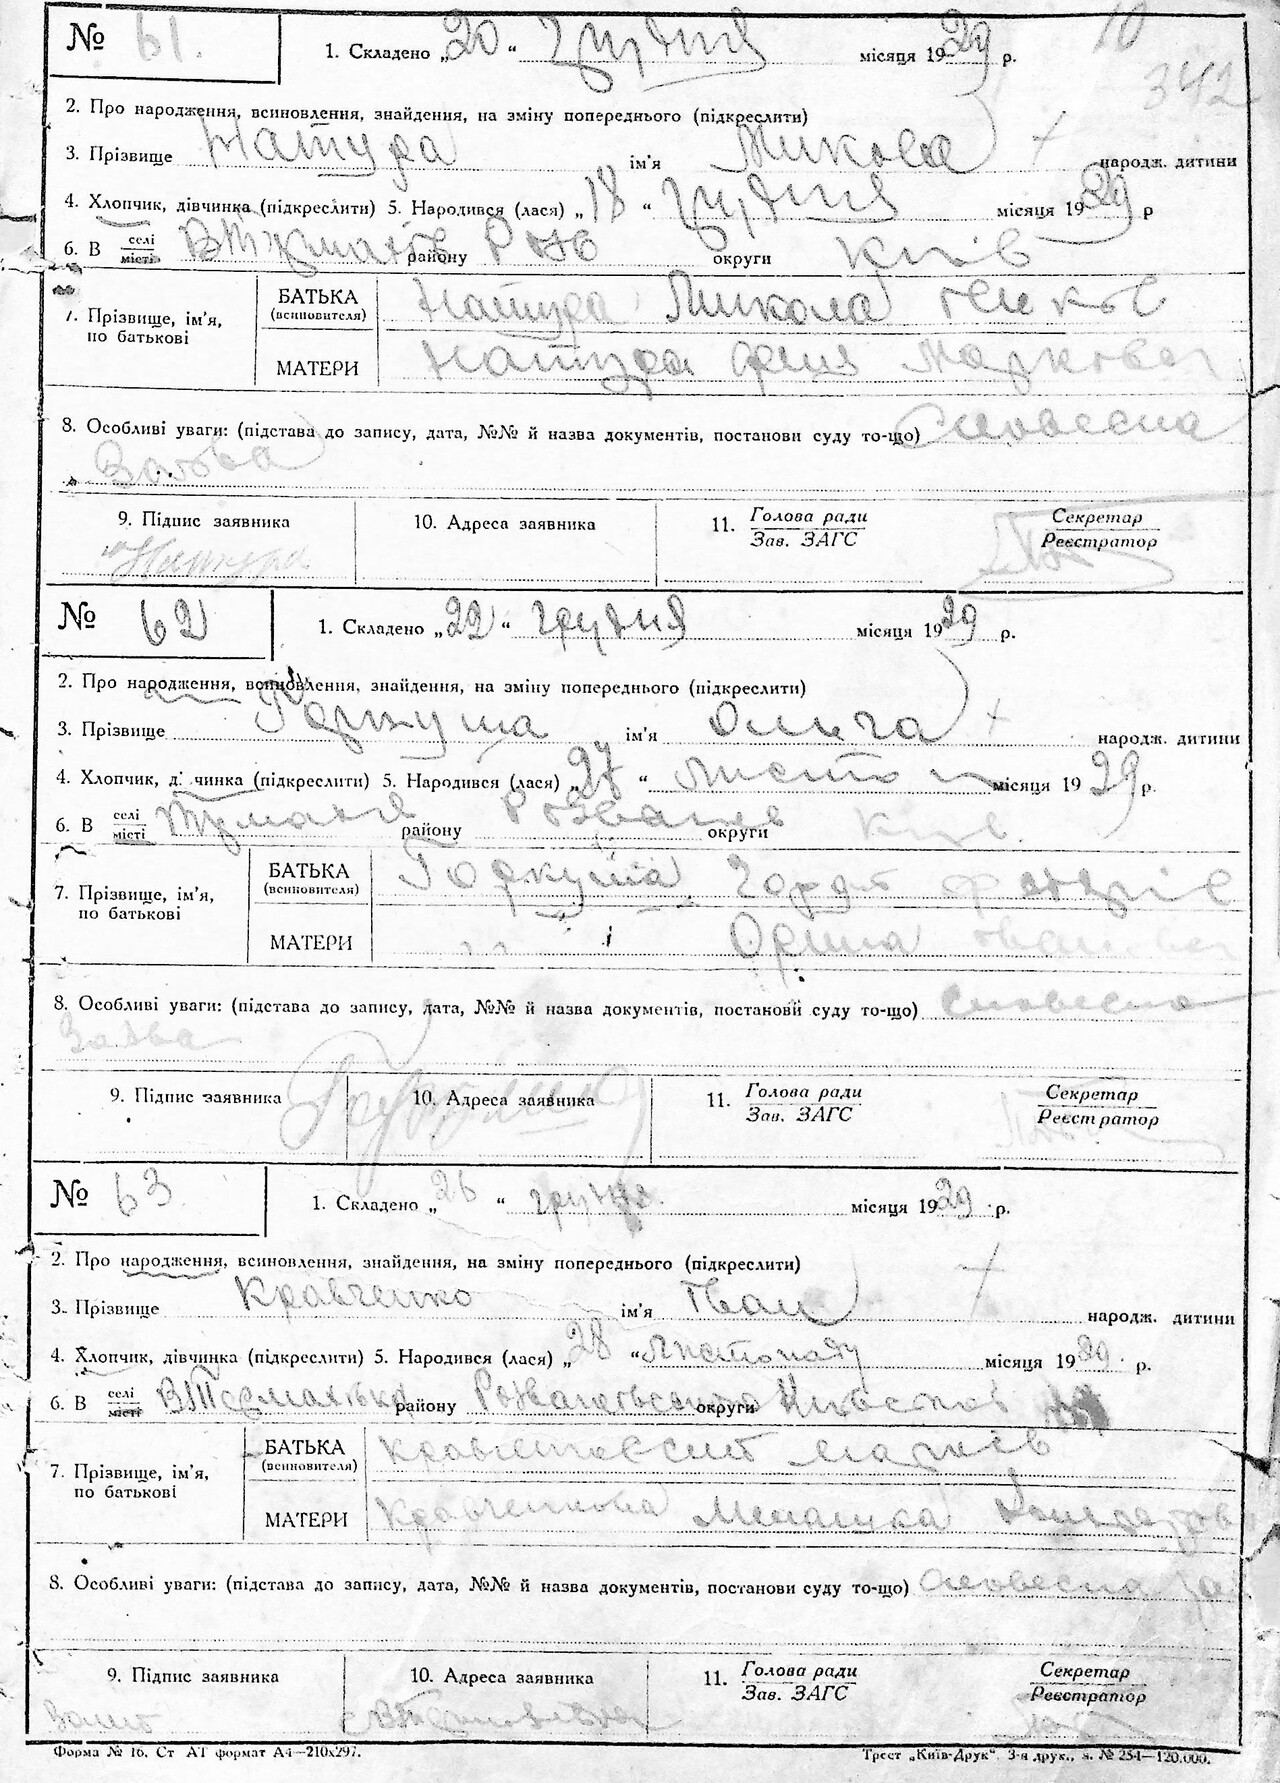 10
342
№ 61.
1. Складено „20“ грудня місяця 1929 р.
2. Про народження, всиновлення, знайдення, на зміну попереднього (підкреслити)
3. Прізвище Натура ім'я Микола народж. дитини
4. Хлопчик, дівчинка (підкреслити) 5. Народився (лася) „18“ грудня місяця 1929 р
6. В селі/місті району округи Київ
7. Прізвище, ім'я, по батькові
БАТЬКА (всиновителя) Натура Микола
МАТЕРИ Натура Марковна
8. Особливі уваги: (підстава до запису, дата, №№ й назва документів, постанови суду то-що) Словесна
Заява
9. Підпис заявника 10. Адреса заявника 11. Голова ради/Зав. ЗАГС Секретар/Реєстратор
Натура
№ 62
1. Складено „22“ грудня місяця 1929 р.
2. Про народження, всиновлення, знайдення, на зміну попереднього (підкреслити)
3. Прізвище Горкуша ім'я Ольга народж. дитини
4. Хлопчик, дівчинка (підкреслити) 5. Народився (лася) „27“ листоп місяця 1929 р.
6. В селі/місті району Розважів округи Київ.
7. Прізвище, ім'я, по батькові
БАТЬКА (всиновителя) Горкуша
МАТЕРИ Орина
8. Особливі уваги: (підстава до запису, дата, №№ й назва документів, постанови суду то-що) Словесна
Заява
9. Підпис заявника 10. Адреса заявника 11. Голова ради/Зав. ЗАГС Секретар/Реєстратор
№ 63
1. Складено „26“ грудня. місяця 1929 р.
2. Про народження, всиновлення, знайдення, на зміну попереднього (підкреслити)
3. Прізвище Кравченко ім'я Іван народж. дитини
4. Хлопчик, дівчинка (підкреслити) 5. Народився (лася) „28“ листопаду місяця 1929 р.
6. В селі/місті району округи
7. Прізвище, ім'я, по батькові
БАТЬКА (всиновителя) Марків
МАТЕРИ Кравченкова Меланка
8. Особливі уваги: (підстава до запису, дата, №№ й назва документів, постанови суду то-що) Словесна за
9. Підпис заявника 10. Адреса заявника 11. Голова ради/Зав. ЗАГС Секретар/Реєстратор
Форма № 16. Ст А1 формат А4—210х297. Трест „Київ-Друк“ 3-я друк., з. № 254—120.000.